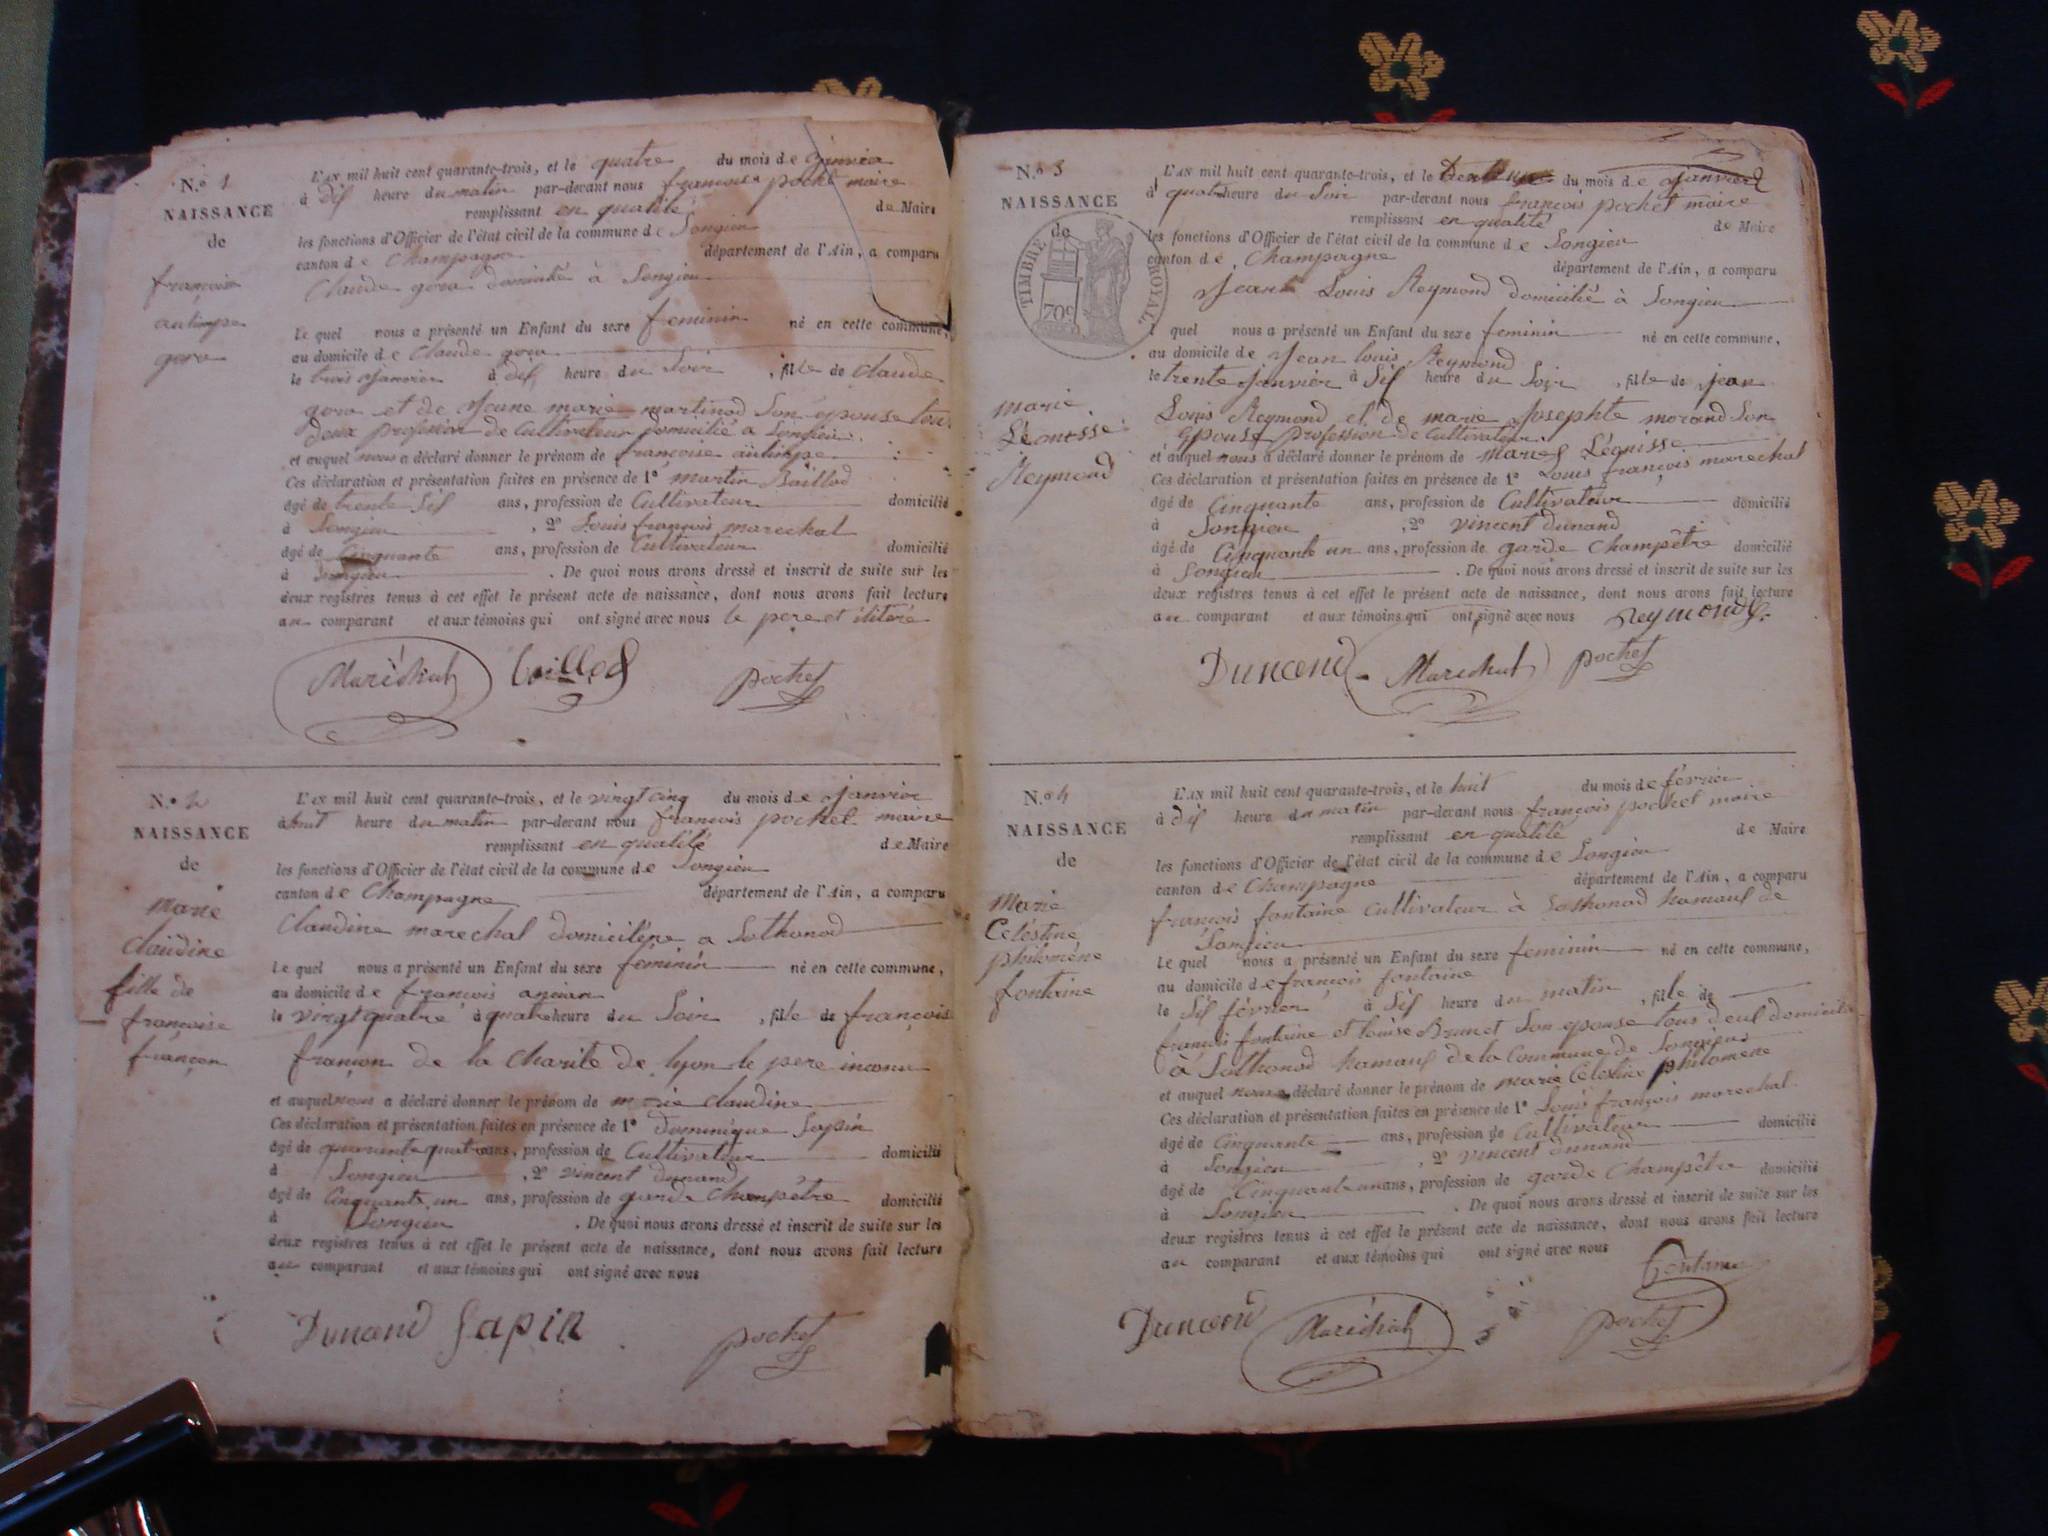 N.º 1
NAISSANCE
de
françoise
autimpe
gora
L'AN mil huit cent quarante-trois, et le quatre du mois de janvier
à dis heure du matin par-devant nous françois pochet maire
remplissant en qualité de Maire
les fonctions d'Officier de l'état civil de la commune de Songieu
canton de Champagne département de l'Ain, a comparu
Claude gora domicilié à Songieu
Le quel nous a présenté un Enfant du sexe feminin né en cette commune,
au domicile de Claude gora
le trois janvier à dis heure du Soir, fille de Claude
gora et de jeanne marie martinod Son epouse tou
deux profession de Cultivateur domicilié a Songieu
et auquel nous a déclaré donner le prénom de françoise autimpe
Ces déclaration et présentation faites en présence de 1º martin Baillod
âgé de trente Sis ans, profession de Cultivateur domicilié
à Songieu, 2º Louis françois marechal
âgé de Cinquante ans, profession de Cultivateur domicilié
à Songieu. De quoi nous avons dressé et inscrit de suite sur les
deux registres tenus à cet effet le présent acte de naissance, dont nous avons fait lecture
au comparant et aux témoins qui ont signé avec nous le pere et ilitéré
Maréchal Baillod pochet
N.º 2
NAISSANCE
de
marie
claudine
fille de
françoise
françon
L'AN mil huit cent quarante-trois, et le vingt cinq du mois de janvier
à huit heure du matin par-devant nous françois pochet maire
remplissant en qualité de Maire
les fonctions d'Officier de l'état civil de la commune de Songieu
canton de Champagne département de l'Ain, a comparu
Claudine marechal domiciliée a Sothonod
Le quel nous a présenté un Enfant du sexe feminin né en cette commune,
au domicile de françois ancian
le vingt quatre à quatre heure du Soir, fille de françoise
françon de la Charité de lyon le pere inconu
et auquel nous a déclaré donner le prénom de marie claudine
Ces déclaration et présentation faites en présence de 1º dominique Sapin
âgé de quarante quatre ans, profession de Cultivateur domicilié
à Songieu, 2º vincent dunand
âgé de Cinquante un ans, profession de garde Champêtre domicilié
à Songieu. De quoi nous avons dressé et inscrit de suite sur les
deux registres tenus à cet effet le présent acte de naissance, dont nous avons fait lecture
au comparant et aux témoins qui ont signé avec nous
Dunand Sapin pochet
N.º 3
NAISSANCE
de
TIMBRE ROYAL
70c
marie
Léonisse
Reymond
L'AN mil huit cent quarante-trois, et le trente une du mois de janvier
à quatre heure du Soir par-devant nous françois pochet maire
remplissant en qualité de Maire
les fonctions d'Officier de l'état civil de la commune de Songieu
canton de Champagne département de l'Ain, a comparu
Jean Louis Reymond domicilié à Songieu
l quel nous a présenté un Enfant du sexe feminin né en cette commune,
au domicile de Jean louis Reymond
le trente janvier à Sis heure du Soir, fille de jean
Louis Reymond et de marie Josephte morand Son
Epouse profession de Cultivateur
et auquel nous a déclaré donner le prénom de marie Léonisse
Ces déclaration et présentation faites en présence de 1º Louis françois marechal
âgé de Cinquante ans, profession de Cultivateur domicilié
à Songieu, 2º vincent dunand
âgé de Cinquante un ans, profession de garde Champêtre domicilié
à Songieu. De quoi nous avons dressé et inscrit de suite sur les
deux registres tenus à cet effet le présent acte de naissance, dont nous avons fait lecture
au comparant et aux témoins qui ont signé avec nous Reymond
Dunand Maréchal pochet
N.º 4
NAISSANCE
de
Marie
Celéstine
philoméne
fontaine
L'AN mil huit cent quarante-trois, et le huit du mois de février
à dis heure du matin par-devant nous françois pochet maire
remplissant en qualité de Maire
les fonctions d'Officier de l'état civil de la commune de Songieu
canton de Champagne département de l'Ain, a comparu
françois fontaine Cultivateur à Sothonod hamaus de
Songieu
Le quel nous a présenté un Enfant du sexe feminin né en cette commune,
au domicile de françois fontaine
le Sis février à Sis heure du matin, fille de
françois fontaine et louise Brunet Son epouse tous deus domicilié
à Sothonod hamaus de la Commune de Songieu
et auquel nous a déclaré donner le prénom de marie Celestine philomène
Ces déclaration et présentation faites en présence de 1º Louis françois marechal
âgé de Cinquante ans, profession de Cultivateur domicilié
à Songieu, 2º vincent dunand
âgé de Cinquante un ans, profession de garde Champêtre domicilié
à Songieu. De quoi nous avons dressé et inscrit de suite sur les
deux registres tenus à cet effet le présent acte de naissance, dont nous avons fait lecture
au comparant et aux témoins qui ont signé avec nous
fontaine
Dunand Maréchal pochet